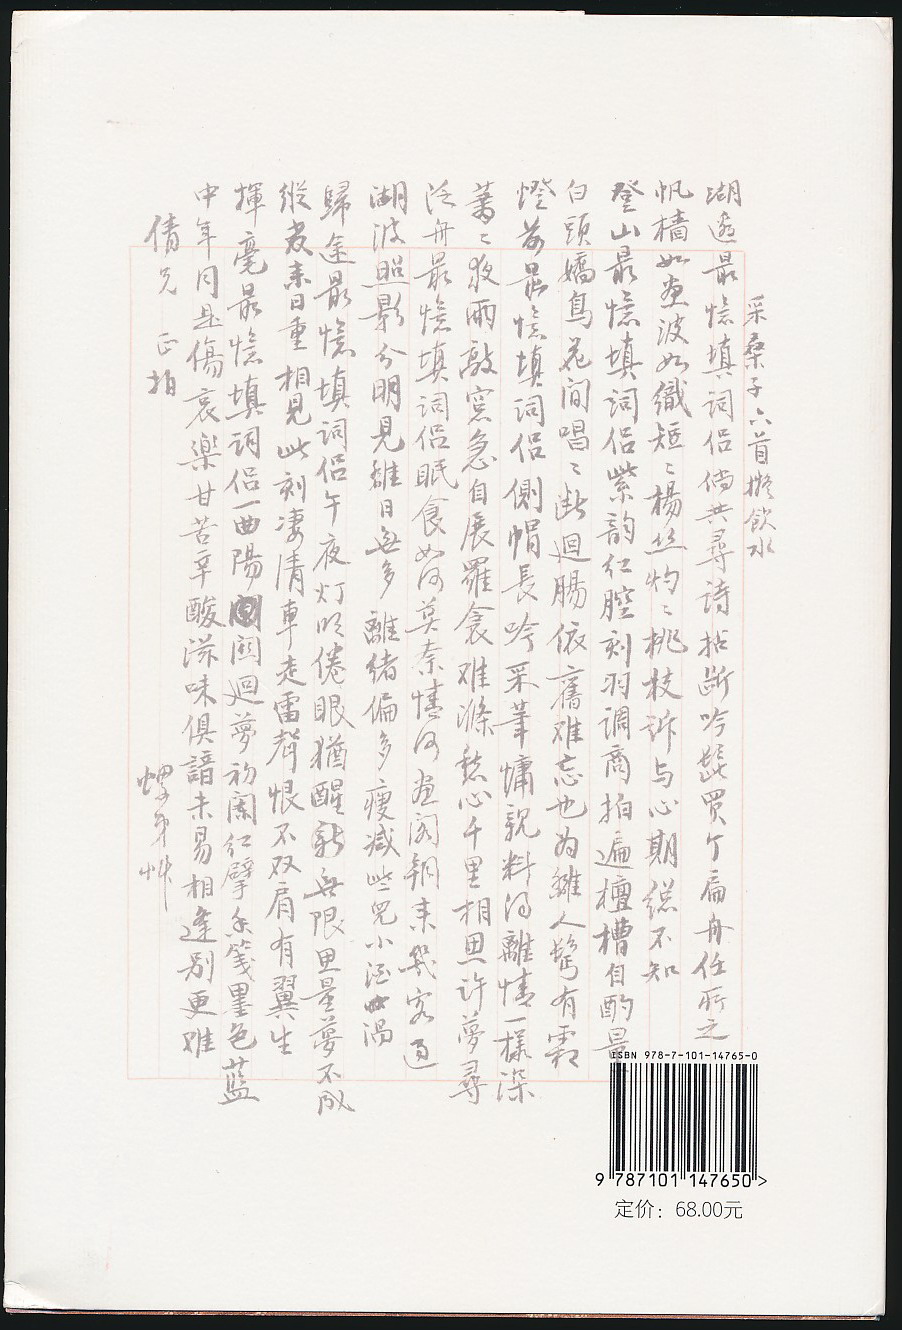 采桑子六首擬飲水
湖邊最憶填詞侣倘共尋詩拈斷吟髭買个扁舟任所之
帆檣如畫波如織短〻楊絲灼〻桃枝訴与心期總不知
登山最憶填詞侣紫韵红腔刻羽調商拍遍檀槽自酌量
白頭嬌鳥花間唱〻断迴腸依舊难忘也為離人鬢有霜
燈前最憶填詞侣側帽長吟采筆慵親料得離情一樣深
蕭〻夜雨敲窓急自展羅衾难滌愁心千里相思许夢尋
泛舟最憶填詞侣眠食如何莫奈情何畫阁朝来幾客過
湖波照影分明見離日無多離緒偏多瘦减些兒小酒渦
歸途最憶填詞侣午夜灯明倦眼猶醒無限思量夢不成
縱教来日重相見此刻凄清車走雷聲恨不双肩有翼生
揮毫最憶填詞侣一曲陽関迴夢初闌红擘香箋墨色藍
中年同是傷哀樂甘苦辛酸滋味俱諳未易相逢别更难
倩兄 正拍
螺弟艸
ISBN 978-7-101-14765-0
9 787101 147650 >
定价：68.00元